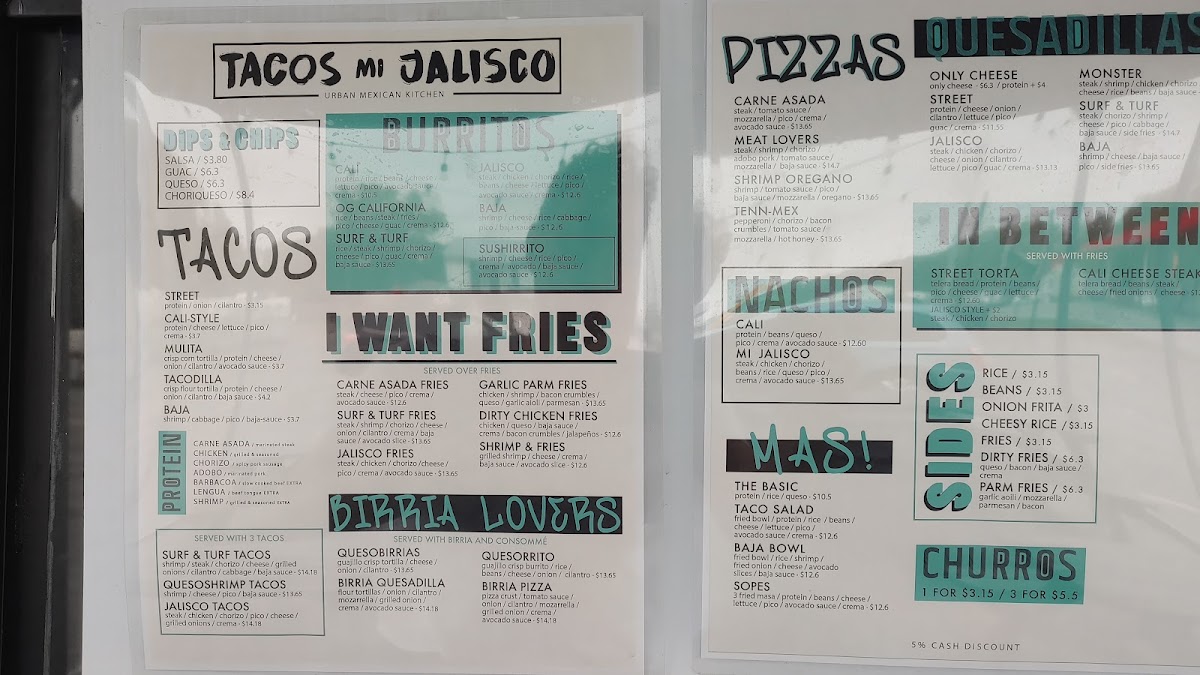 TACOS MI JALISCO
URBAN MEXICAN KITCHEN
DIPS & CHIPS
SALSA / $3.80
GUAC / $6.3
QUESO / $6.3
CHORIQUESO / $8.4
TACOS
STREET
protein / onion / cilantro - $3.15
CALI-STYLE
protein / cheese / lettuce / pico /
crema - $3.7
MULITA
crisp corn tortilla / protein / cheese /
onion / cilantro / avocado sauce - $3.7
TACODILLA
crisp flour tortilla / protein / cheese /
onion / cilantro / baja sauce - $4.2
BAJA
shrimp / cabbage / pico / baja-sauce - $3.7
PROTEIN
CARNE ASADA / marinated steak
CHICKEN / grilled & seasoned
CHORIZO / spicy pork sausage
ADOBO / marinated pork
BARBACOA / slow cooked beef EXTRA
LENGUA / beef tongue EXTRA
SHRIMP / grilled & seasoned EXTRA
SERVED WITH 3 TACOS
SURF & TURF TACOS
shrimp / steak / chorizo / cheese / grilled
onions / cilantro / cabbage / baja sauce - $14.18
QUESOSHRIMP TACOS
shrimp / cheese / pico / baja sauce - $13.65
JALISCO TACOS
steak / chicken / chorizo / pico / cheese /
grilled onions / crema - $14.18
BURRITOS
CALI
protein / rice / beans / cheese /
lettuce / pico / avocado sauce /
crema - $10.5
OG CALIFORNIA
rice / beans / steak / fries /
pico / cheese / guac / crema - $12.6
SURF & TURF
rice / steak / shrimp / chorizo /
cheese / pico / guac / crema /
baja sauce - $13.65
JALISCO
steak / chicken / chorizo / rice /
beans / cheese / lettuce / pico /
avocado sauce / crema - $12.6
BAJA
shrimp / cheese / rice / cabbage /
pico / baja sauce - $12.6
SUSHIRRITO
shrimp / cheese / rice / pico /
crema / avocado / baja sauce /
avocado sauce - $12.6
I WANT FRIES
SERVED OVER FRIES
CARNE ASADA FRIES
steak / cheese / pico / crema /
avocado sauce - $12.6
SURF & TURF FRIES
steak / shrimp / chorizo / cheese /
onion / cilantro / crema / baja
sauce / avocado slice - $13.65
JALISCO FRIES
steak / chicken / chorizo / cheese /
pico / crema / avocado sauce - $13.65
GARLIC PARM FRIES
chicken / shrimp / bacon crumbles /
queso / garlic aioli / parmesan - $13.65
DIRTY CHICKEN FRIES
chicken / queso / baja sauce /
crema / bacon crumbles / jalapeños - $12.6
SHRIMP & FRIES
grilled shrimp / cheese / crema /
baja sauce / avocado slice - $12.6
BIRRIA LOVERS
SERVED WITH BIRRIA AND CONSOMMÉ
QUESOBIRRIAS
guajillo crisp tortilla / cheese /
onion / cilantro - $13.65
BIRRIA QUESADILLA
flour tortillas / onion / cilantro /
mozarella / grilled onion /
crema / avocado sauce - $14.18
QUESORRITO
guajillo crisp burrito / rice /
beans / cheese / onion / cilantro - $13.65
BIRRIA PIZZA
pizza crust / tomato sauce /
onion / cilantro / mozzarella /
grilled onion / crema /
avocado sauce - $14.18
PIZZAS
CARNE ASADA
steak / tomato sauce /
mozzarella / pico / crema /
avocado sauce - $13.65
MEAT LOVERS
steak / shrimp / chorizo /
adobo pork / tomato sauce /
mozzarella / baja sauce - $14.7
SHRIMP OREGANO
shrimp / tomato sauce / pico /
baja sauce / mozzarella / oregano - $13.65
TENN-MEX
pepperoni / chorizo / bacon
crumbles / tomato sauce /
mozzarella / hot honey - $13.65
NACHOS
CALI
protein / beans / queso /
pico / crema / avocado sauce - $12.60
MI JALISCO
steak / chicken / chorizo /
beans / rice / queso / pico /
crema / avocado sauce - $13.65
MAS!
THE BASIC
protein / rice / queso - $10.5
TACO SALAD
fried bowl / protein / rice / beans /
cheese / lettuce / pico /
avocado sauce / crema - $12.6
BAJA BOWL
fried bowl / rice / shrimp /
fried onion / cheese / avocado
slices / baja sauce - $12.6
SOPES
3 fried masa / protein / beans / cheese /
lettuce / pico / avocado sauce / crema - $12.6
QUESADILLAS
ONLY CHEESE
only cheese - $6.3 / protein + $4
STREET
protein / cheese / onion /
cilantro / lettuce / pico /
guac / crema - $11.55
JALISCO
steak / chicken / chorizo /
cheese / onion / cilantro /
lettuce / pico / guac / crema - $13.13
MONSTER
steak / shrimp / chicken / chorizo /
cheese / rice / beans / baja sauce -
SURF & TURF
steak / shrimp / chorizo /
cheese / pico / cabbage /
baja sauce / side fries - $14.7
BAJA
shrimp / cheese / baja sauce /
pico / side fries - $13.65
IN BETWEEN
SERVED WITH FRIES
STREET TORTA
telera bread / protein / beans /
pico / cheese / guac / lettuce /
crema - $12.60
JALISCO STYLE + $2
steak / chicken / chorizo
CALI CHEESE STEAK
telera bread / beans / steak /
cheese / fried onions / cheese -
SIDES
RICE / $3.15
BEANS / $3.15
ONION FRITA / $3
CHEESY RICE / $3.15
FRIES / $3.15
DIRTY FRIES / $6.3
queso / bacon / baja sauce /
crema
PARM FRIES / $6.3
garlic aoili / mozzarella /
parmesan / bacon
CHURROS
1 FOR $3.15 / 3 FOR $5.5
5% CASH DISCOUNT